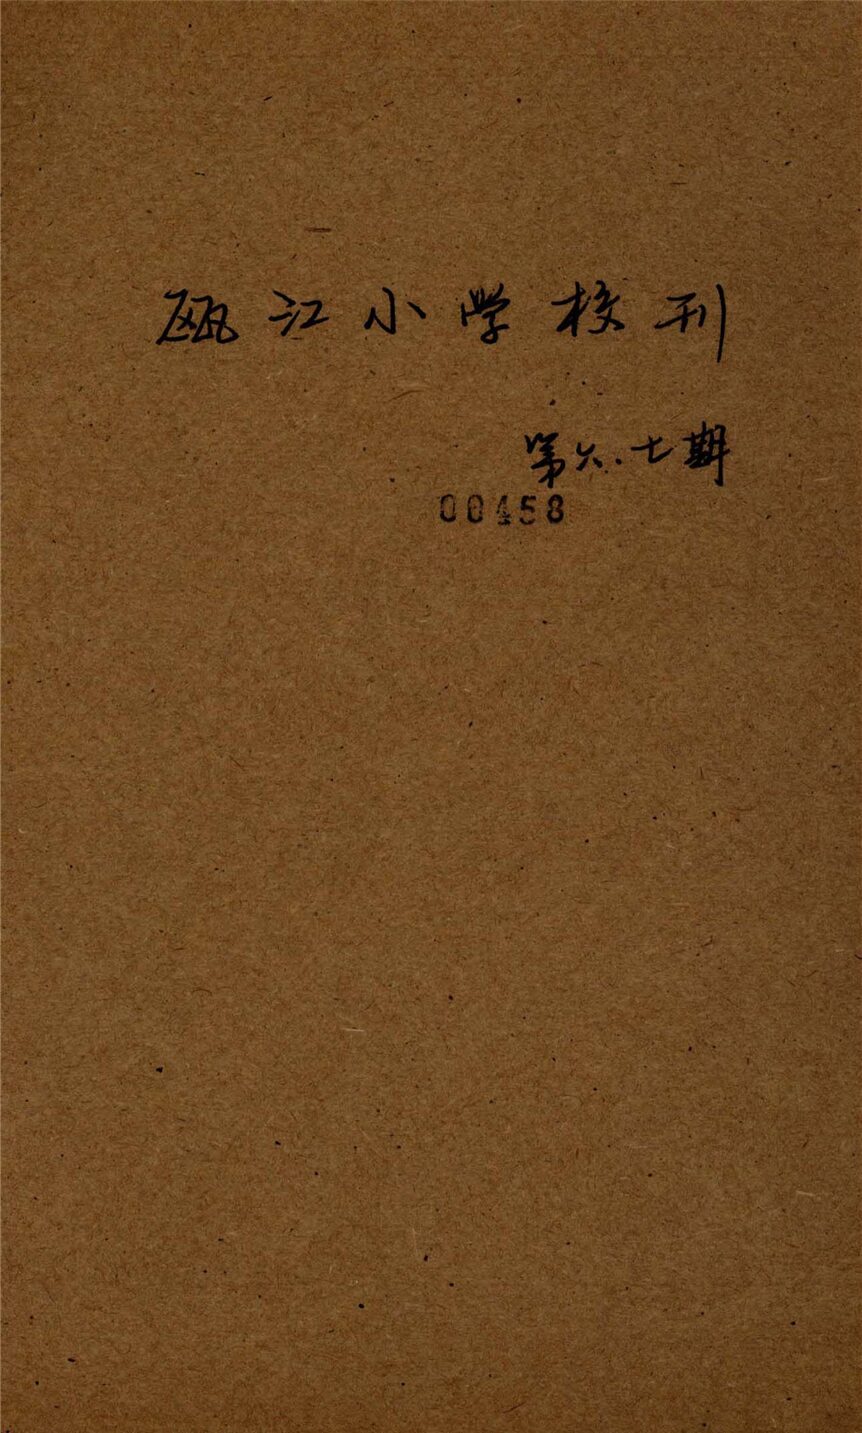 瓯江小学校刊
第六.七期
00458